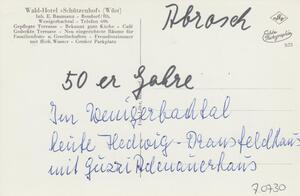 Wald-Hotel »Schützenhof« (Wüst)
Inh. E. Baumann - Bendorf/Rh.
Wenigerbachtal - Telefon 696
Gepflegte Terrasse - Bekannt gute Küche - Café
Gedeckte Terrassen - Neu eingerichtete Räume für
Familienfeste u. Gesellschaften - Fremdenzimmer
mit fließ. Wasser - Großer Parkplatz
Abrosch
Echte
Photographie
50 er Jahre
Im Wenigerbachtal
heute Hedwig-Dransfeldhaus
mit Gussi Adenauerhaus
70730